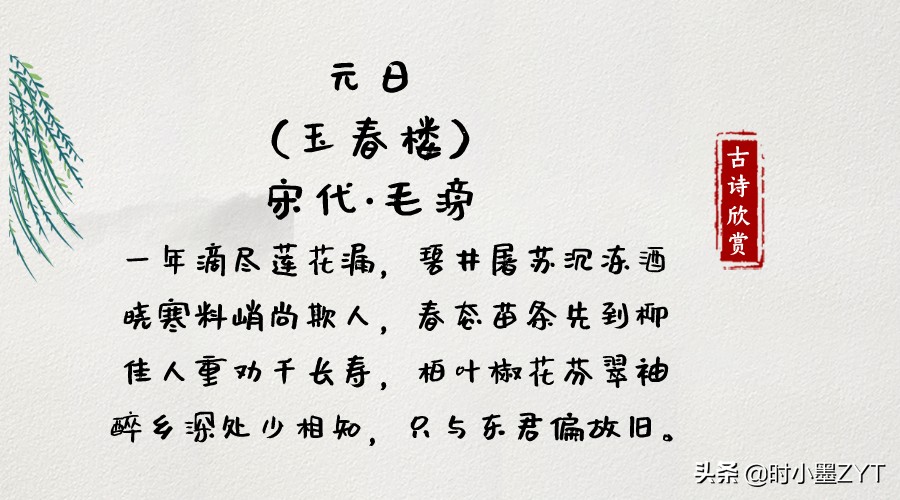 元日
(玉春楼)
宋代·毛滂
一年滴尽莲花漏,碧井屠苏沉冻酒
晓寒料峭尚欺人,春态苗条先到柳
佳人重劝千长寿,柏叶椒花芬翠袖
醉乡深处少相知,只与东君偏故旧。
古诗欣赏
头条 @时小墨ZYT